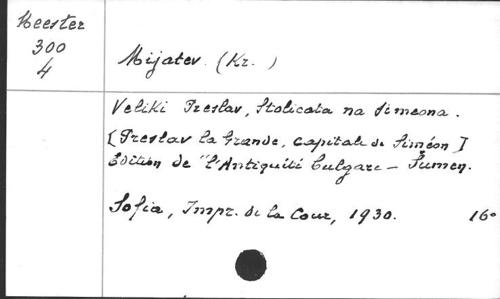 Meester
300
4
Mijatev. (Kr. )
Veliki Preslav, Stolicata na Simeona.
[Preslav la Grande, Capitale de Siméon]
Edition de "l'Antiquité bulgare – Šumen.
Sofia, Impr. de la Cour, 1930. 16°